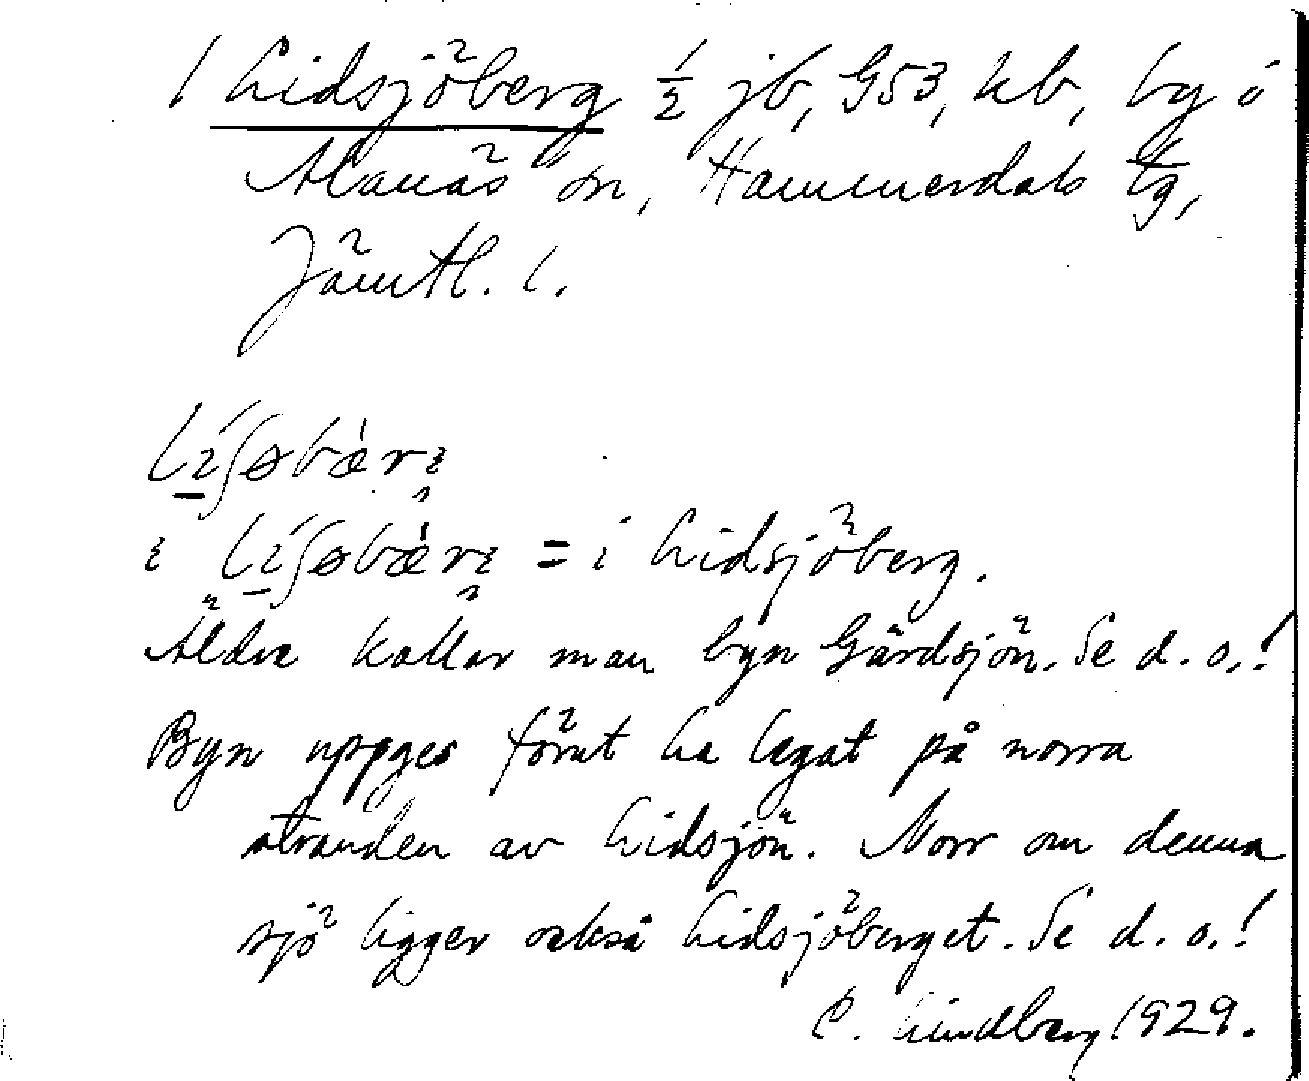 1 Lidsjöberg ½ jb, G53, kb, by i
Alanäs sn, Hammerdals tg,
Jämtl. l.
i = i Lidsjöberg.
Äldre kallar man byn Gärdsjön. Se d. o.!
Byn uppges förut ha legat på norra
stranden av Lidsjön. Norr om denna
sjö ligger också Lidsjöberget. Se d. o.!
C. Lindberg 1929.